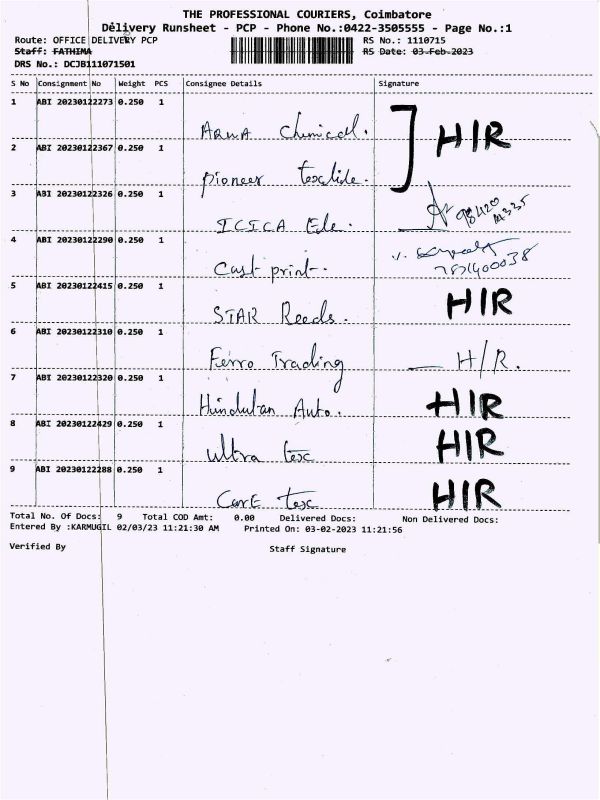 THE PROFESSIONAL COURIERS, Coimbatore
Delivery Runsheet - PCP - Phone No.:0422-3505555 - Page No.:1
Route: OFFICE DELIVERY PCP RS No.: 1110715
Staff: FATHIMA RS Date: 03-Feb-2023
DRS No.: DCJB111071501
S No Consignment No Weight PCS Consignee Details Signature
1 ABI 20230122273 0.250 1
Chemical. HIR
2 ABI 20230122367 0.250 1
pioneer textile.
3 ABI 20230122326 0.250 1
ICICA Ele. 98420
4 ABI 20230122290 0.250 1
Cast print.
5 ABI 20230122415 0.250 1
STAR Reeds. HIR
6 ABI 20230122310 0.250 1
Ferro Trading H/R.
7 ABI 20230122320 0.250 1
Hindustan Auto. HIR
8 ABI 20230122429 0.250 1
ultra tex HIR
9 ABI 20230122288 0.250 1
Care tex HIR
Total No. Of Docs: 9 Total COD Amt: 0.00 Delivered Docs: Non Delivered Docs:
Entered By :KARMUGIL 02/03/23 11:21:30 AM Printed On: 03-02-2023 11:21:56
Verified By Staff Signature